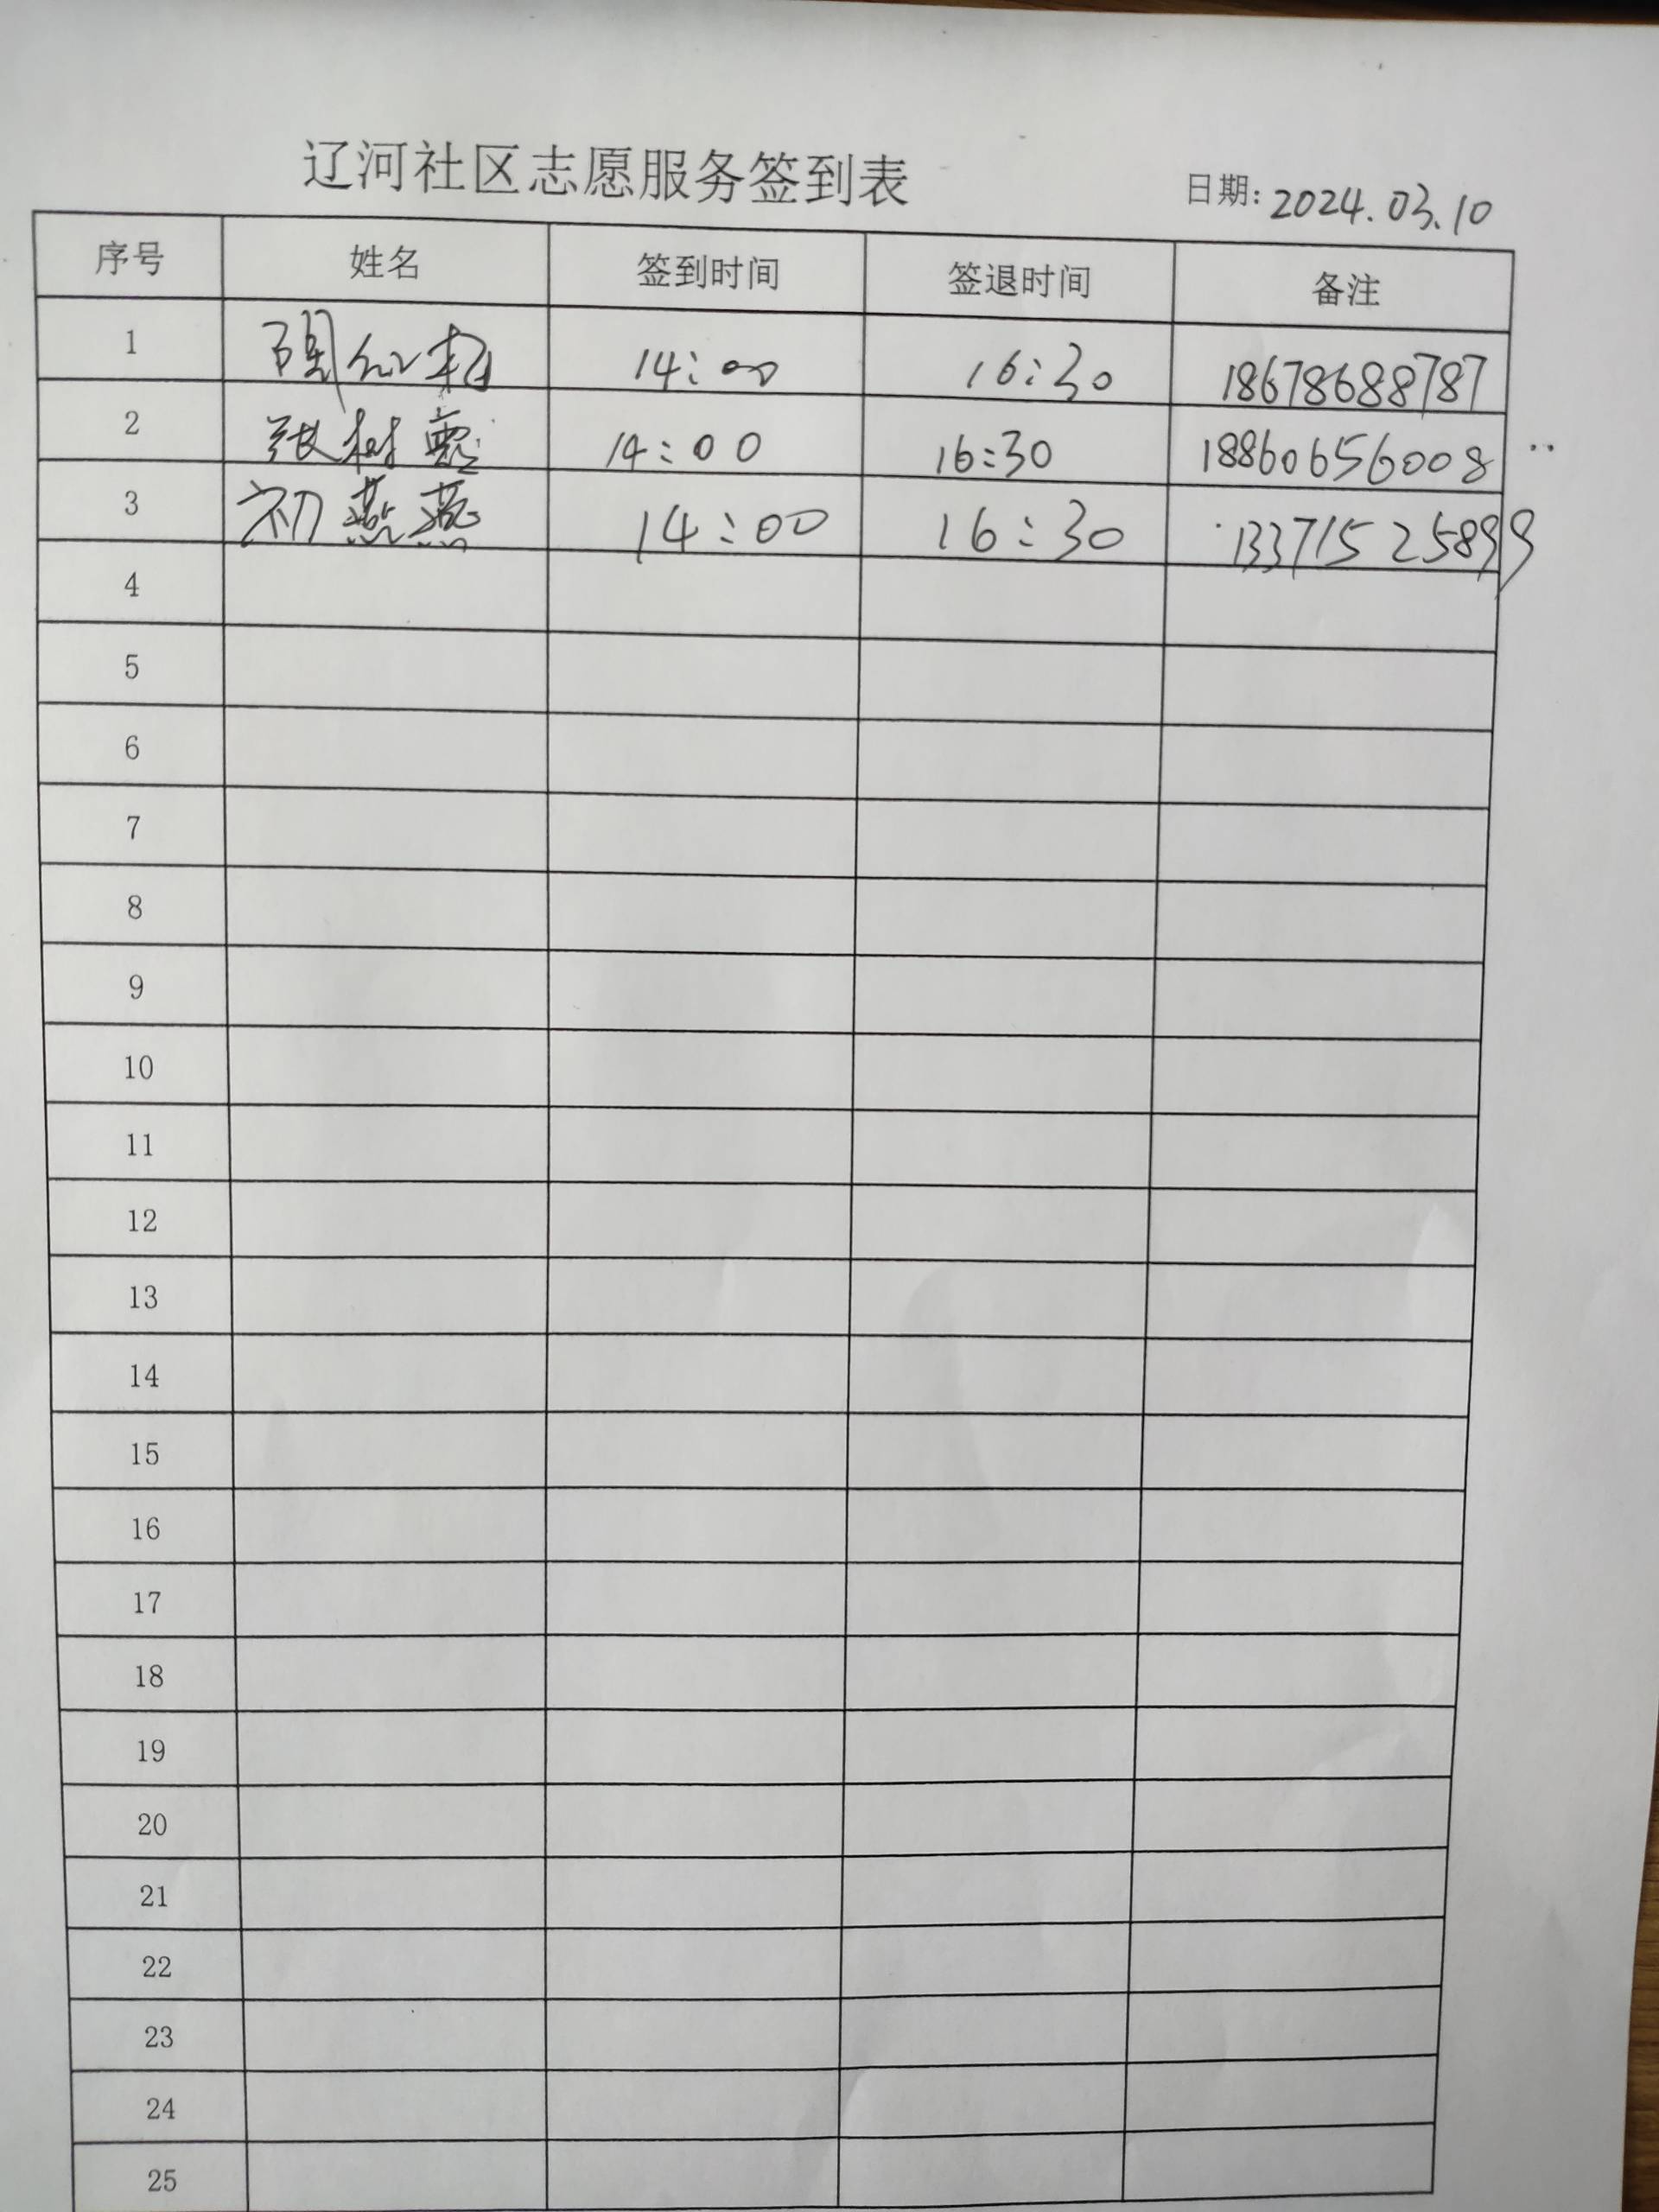 辽河社区志愿服务签到表
日期: 2024.03.10
序号 姓名 签到时间 签退时间 备注
1 14:00 16:30 18678688787
2 张树 14:00 16:30 18860656008
3 初燕燕 14:00 16:30 13371525899
4
5
6
7
8
9
10
11
12
13
14
15
16
17
18
19
20
21
22
23
24
25